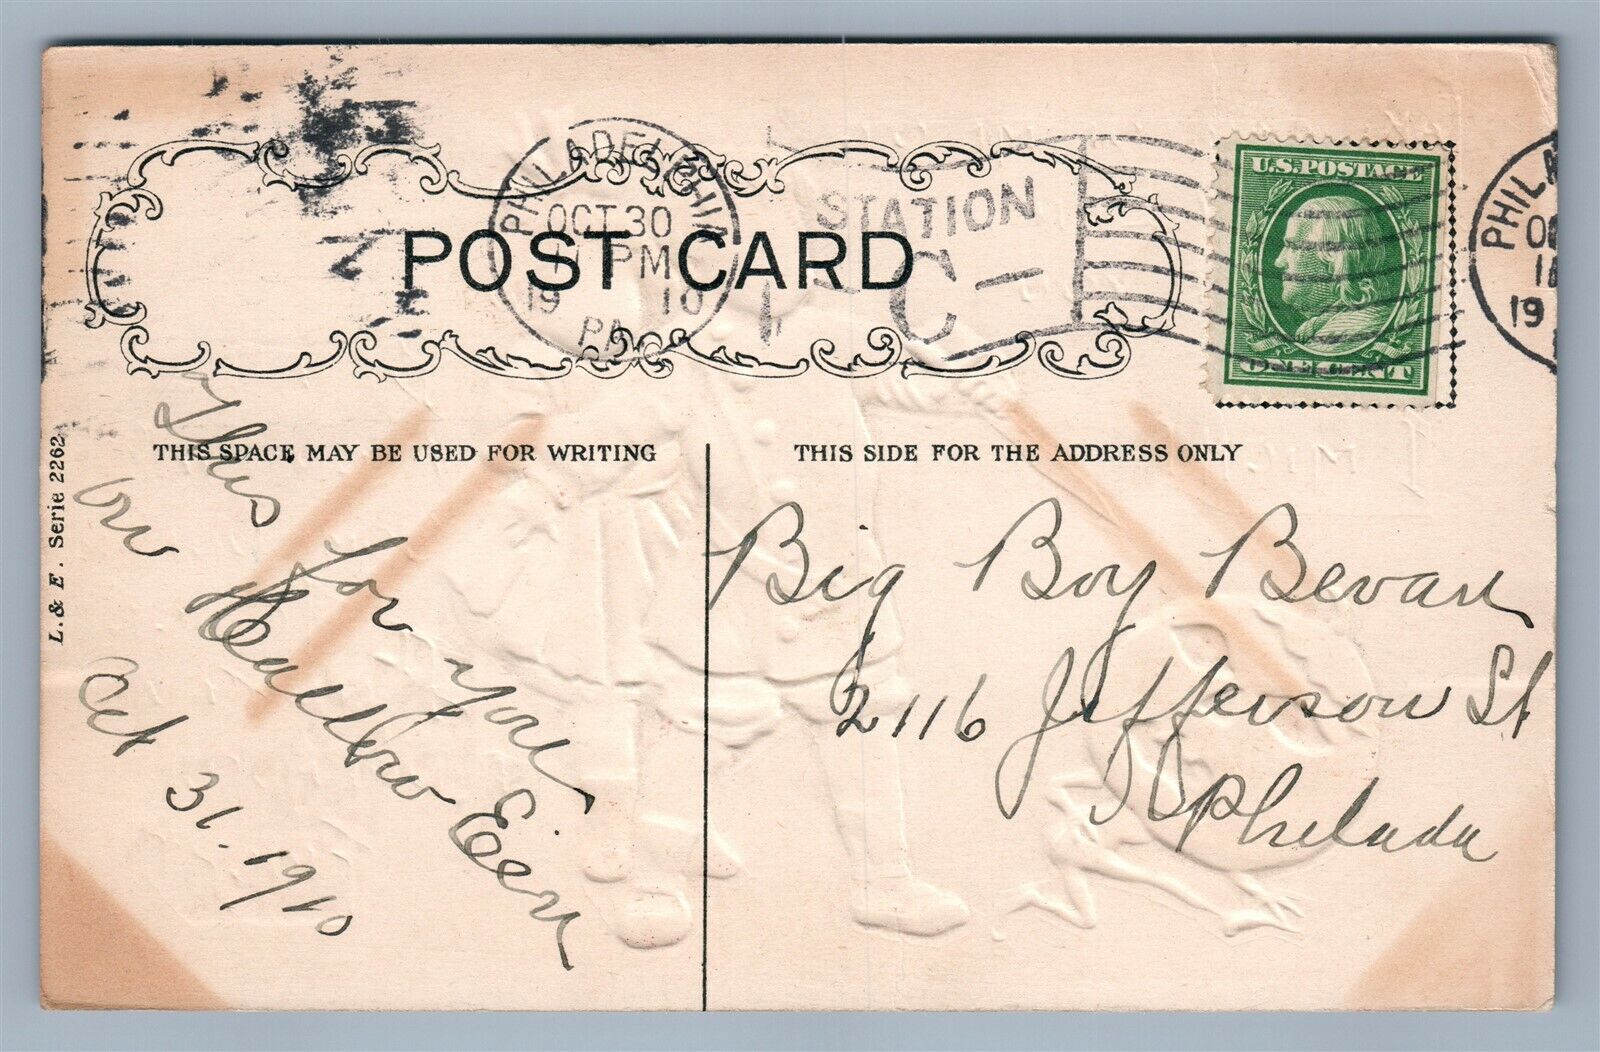 PHILADELPHIA
OCT 30
PM
19 10
PA
STATION
C
POST CARD
U.S. POSTAGE
ONE CENT
PHILA
19
THIS SPACE MAY BE USED FOR WRITING
THIS SIDE FOR THE ADDRESS ONLY
L. & E. Serie 2262
This for you
on Heallow Een
Oct 31. 1910
Big Boy Bevan
2116 Jefferson St
Philada